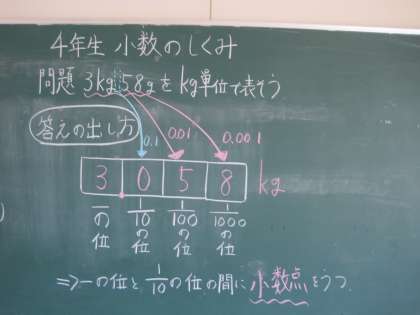 4年生 小数のしくみ
問題 3kg58gをkg単位で表そう
答えの出し方
0.1 0.01 0.001
3 0 5 8 kg
一の位 1/10の位 1/100の位 1/1000の位
⇒一の位と1/10の位の間に小数点をうつ